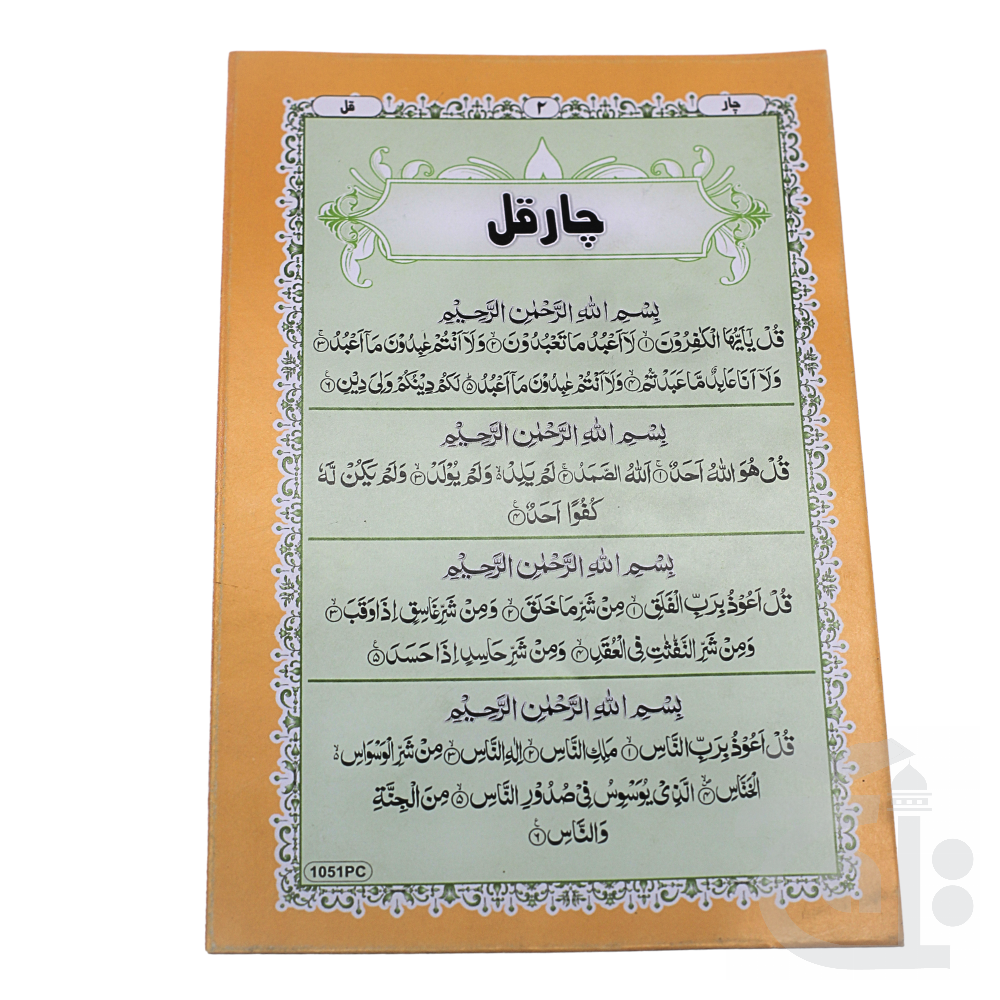 چار ۲ قل
چار قل
بِسْمِ اللّٰهِ الرَّحْمٰنِ الرَّحِيْمِ
قُلْ يٰٓاَيُّهَا الْكٰفِرُوْنَ ۙ﴿۱﴾ لَاۤ اَعْبُدُ مَا تَعْبُدُوْنَ ۙ﴿۲﴾ وَلَاۤ اَنْتُمْ عٰبِدُوْنَ مَاۤ اَعْبُدُ ۚ﴿۳﴾
وَلَاۤ اَنَا عَابِدٌ مَّا عَبَدْتُّمْ ۙ﴿۴﴾ وَلَاۤ اَنْتُمْ عٰبِدُوْنَ مَاۤ اَعْبُدُ ؕ﴿۵﴾ لَكُمْ دِيْنُكُمْ وَلِىَ دِيْنِ ۠﴿۶﴾
بِسْمِ اللّٰهِ الرَّحْمٰنِ الرَّحِيْمِ
قُلْ هُوَ اللّٰهُ اَحَدٌ ۚ﴿۱﴾ اَللّٰهُ الصَّمَدُ ۚ﴿۲﴾ لَمْ يَلِدْ ۙ وَلَمْ يُوْلَدْ ۙ﴿۳﴾ وَلَمْ يَكُنْ لَّهٗ
كُفُوًا اَحَدٌ ۠﴿۴﴾
بِسْمِ اللّٰهِ الرَّحْمٰنِ الرَّحِيْمِ
قُلْ اَعُوْذُ بِرَبِّ الْفَلَقِ ۙ﴿۱﴾ مِنْ شَرِّ مَا خَلَقَ ۙ﴿۲﴾ وَمِنْ شَرِّ غَاسِقٍ اِذَا وَقَبَ ۙ﴿۳﴾
وَمِنْ شَرِّ النَّفّٰثٰتِ فِى الْعُقَدِ ۙ﴿۴﴾ وَمِنْ شَرِّ حَاسِدٍ اِذَا حَسَدَ ۠﴿۵﴾
بِسْمِ اللّٰهِ الرَّحْمٰنِ الرَّحِيْمِ
قُلْ اَعُوْذُ بِرَبِّ النَّاسِ ۙ﴿۱﴾ مَلِكِ النَّاسِ ۙ﴿۲﴾ اِلٰهِ النَّاسِ ۙ﴿۳﴾ مِنْ شَرِّ الْوَسْوَاسِ ۙ
الْخَنَّاسِ ۙ﴿۴﴾ الَّذِىْ يُوَسْوِسُ فِىْ صُدُوْرِ النَّاسِ ۙ﴿۵﴾ مِنَ الْجِنَّةِ
وَالنَّاسِ ۠﴿۶﴾
1051PC